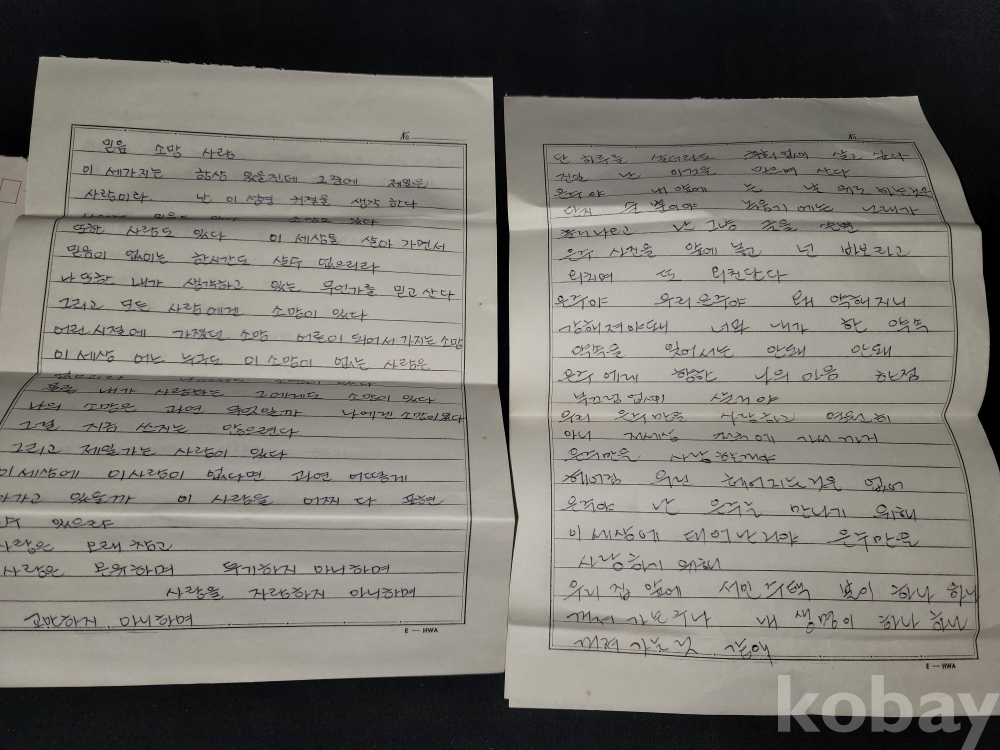 No
믿음 소망 사랑
이 세가지는 항상 있을진데 그중에 제일은
사랑이라. 난 이 성경 귀절을 생각 한다
소망이 있다
또한 사랑도 있다 이 세상을 살아 가면서
믿음이 없이는 한시간도 살수 없으리라
나 또한 내가 생각하고 있는 무언가를 믿고 산다
그리고 모든 사람에겐 소망이 있다
어린시절에 가졌던 소망 어른이 되어서 가지는 소망
이 세상 어느 누구도 이 소망이 없는 사람은
물론 내가 사랑하는 그에게도 소망이 있다
나의 소망은 과연 무엇일까 나에겐 소망이 많다
그걸 지금 쓰지는 않으련다
그리고 제일가는 사랑이 있다
이 세상에 이사랑이 없다면 과연 어떻게
아가고 있을까 이 사랑을 어찌 다 표현
수 있으랴
사랑은 오래 참고
사랑은 온유하며 투기하지 아니하며
사랑을 자랑하지 아니하며
교만하지 아니하며
E-HWA
No
단 하루를 살더라도 후회없이 살고 싶다
난 이것을 믿으며 산다
은주야 내 앞에
단지
난 그냥 죽을
은주 사진을 앞에 놓고 넌 바보라고
외치며 또 외친단다
은주야 우리은주야 왜 약해지니
강해져야돼 너와 내가 한 약속
약속을 잊어서는 안돼 안돼
은주에게 향한 나의 마음 한점
부끄럼 없이
우리 은주만을 사랑하고 영원히
아니 저세상
은주만을 사랑할거야
헤어짐 우린 헤어지는것은 없어
은주야 난 은주를 만나기 위해
이 세상에 태어난거야 은주만을
사랑하기 위해
우리 집 앞에 서민주택 불이 하나 하나
꺼져 가는구나 내 생명이 하나 하나
꺼져 가는 것 같애
E-HWA
kobay